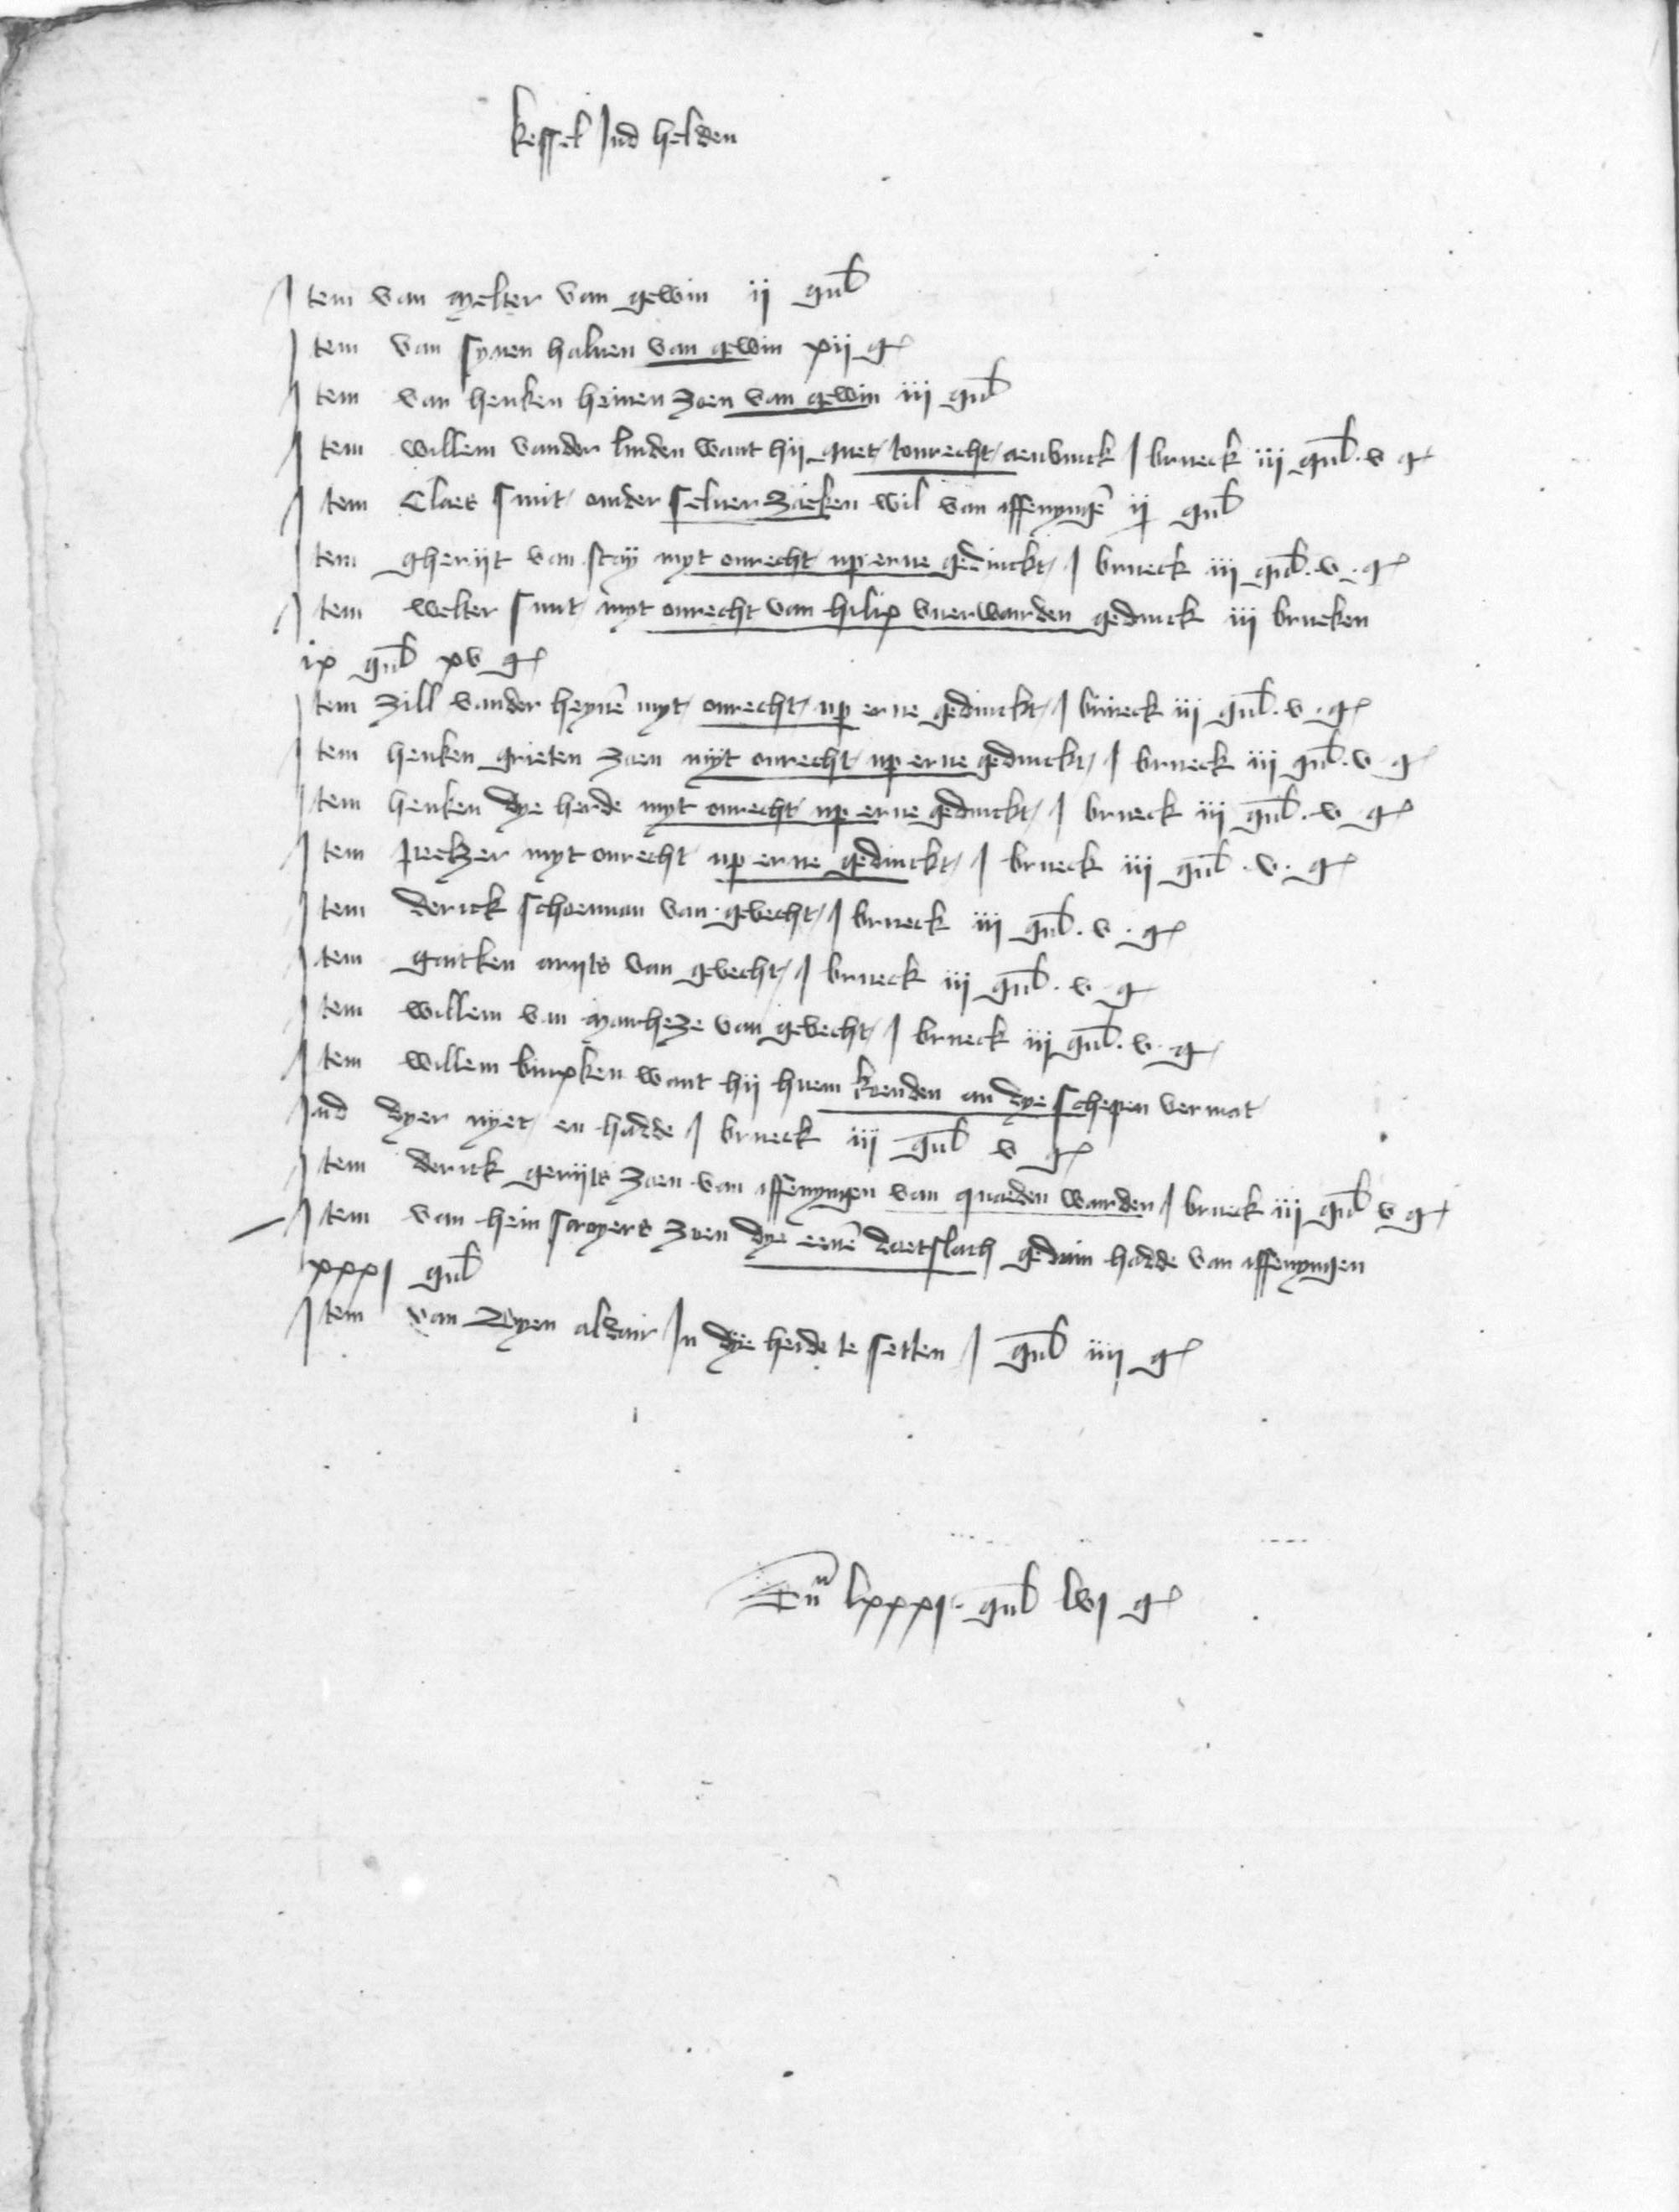 kessel Ind helden
Item van melter van gewin ij gul
Item van synen haluen van gewin xij g
Item van henken heinen zoen van gewin iij gul
Item willem vander linden want hij guet tonrecht aenvinck I brueck iij gul v g
Item Claes smit onder seluer zaeken wil van effenyngē ij gul
Item gheriit van stay myt onrecht up erue gedinckt I brueck iij gul v g
Item welter smit myt onrecht van hilix vuerwarden gedinck iij brueken
ix gul xv g
Item zill vander heynē myt onrecht up erue gedinckt I brueck iij gul v g
Item henken grieten zoen myt onrecht up erue gedinckt I brueck iij gul v g
Item henken dye herde myt onrecht up erue gedinckt I brueck iij gul v g
Item peelzer myt onrecht up erue gedinckt I brueck iij gul v g
Item derick schoenman van gevecht I brueck iij gul v g
Item gaitken ariits van gevecht I brueck iij gul v g
Item willem van marheze van gevecht I brueck iij gul v g
Item willem binxken want hij huem konden an dye schepen vermat
Ind dyer nyet en hadde I brueck iij gul v g
Item derick geriits zoen van effenyngen van quaeden warden I brueck iij gul v g
Item van hein scroyers zoen dye eenē doetslach gedain hadde van effenyngen
xxxj gul
Item van byen aldair In dye heide te setten I gul iiij g
Sū lxxxj gul lvj g